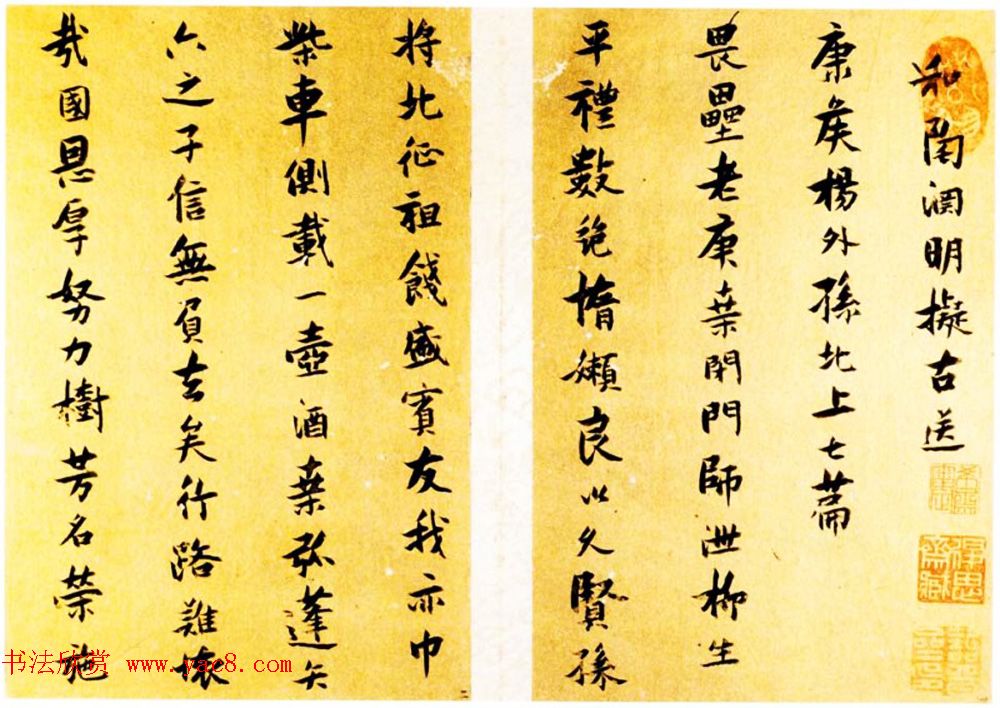 和陶淵明擬古送
康侯楊外孫北上七篇
畏壘老庚桑閉門師泄柳生
平禮數絶惰嬾良以久賢孫
將北征祖餞盛賓友我亦巾
柴車側載一壺酒桑弧蓬矢
六之子信無負去矣行路難懷
哉國恩厚努力樹芳名榮施
二
书法欣赏 www.yac8.com